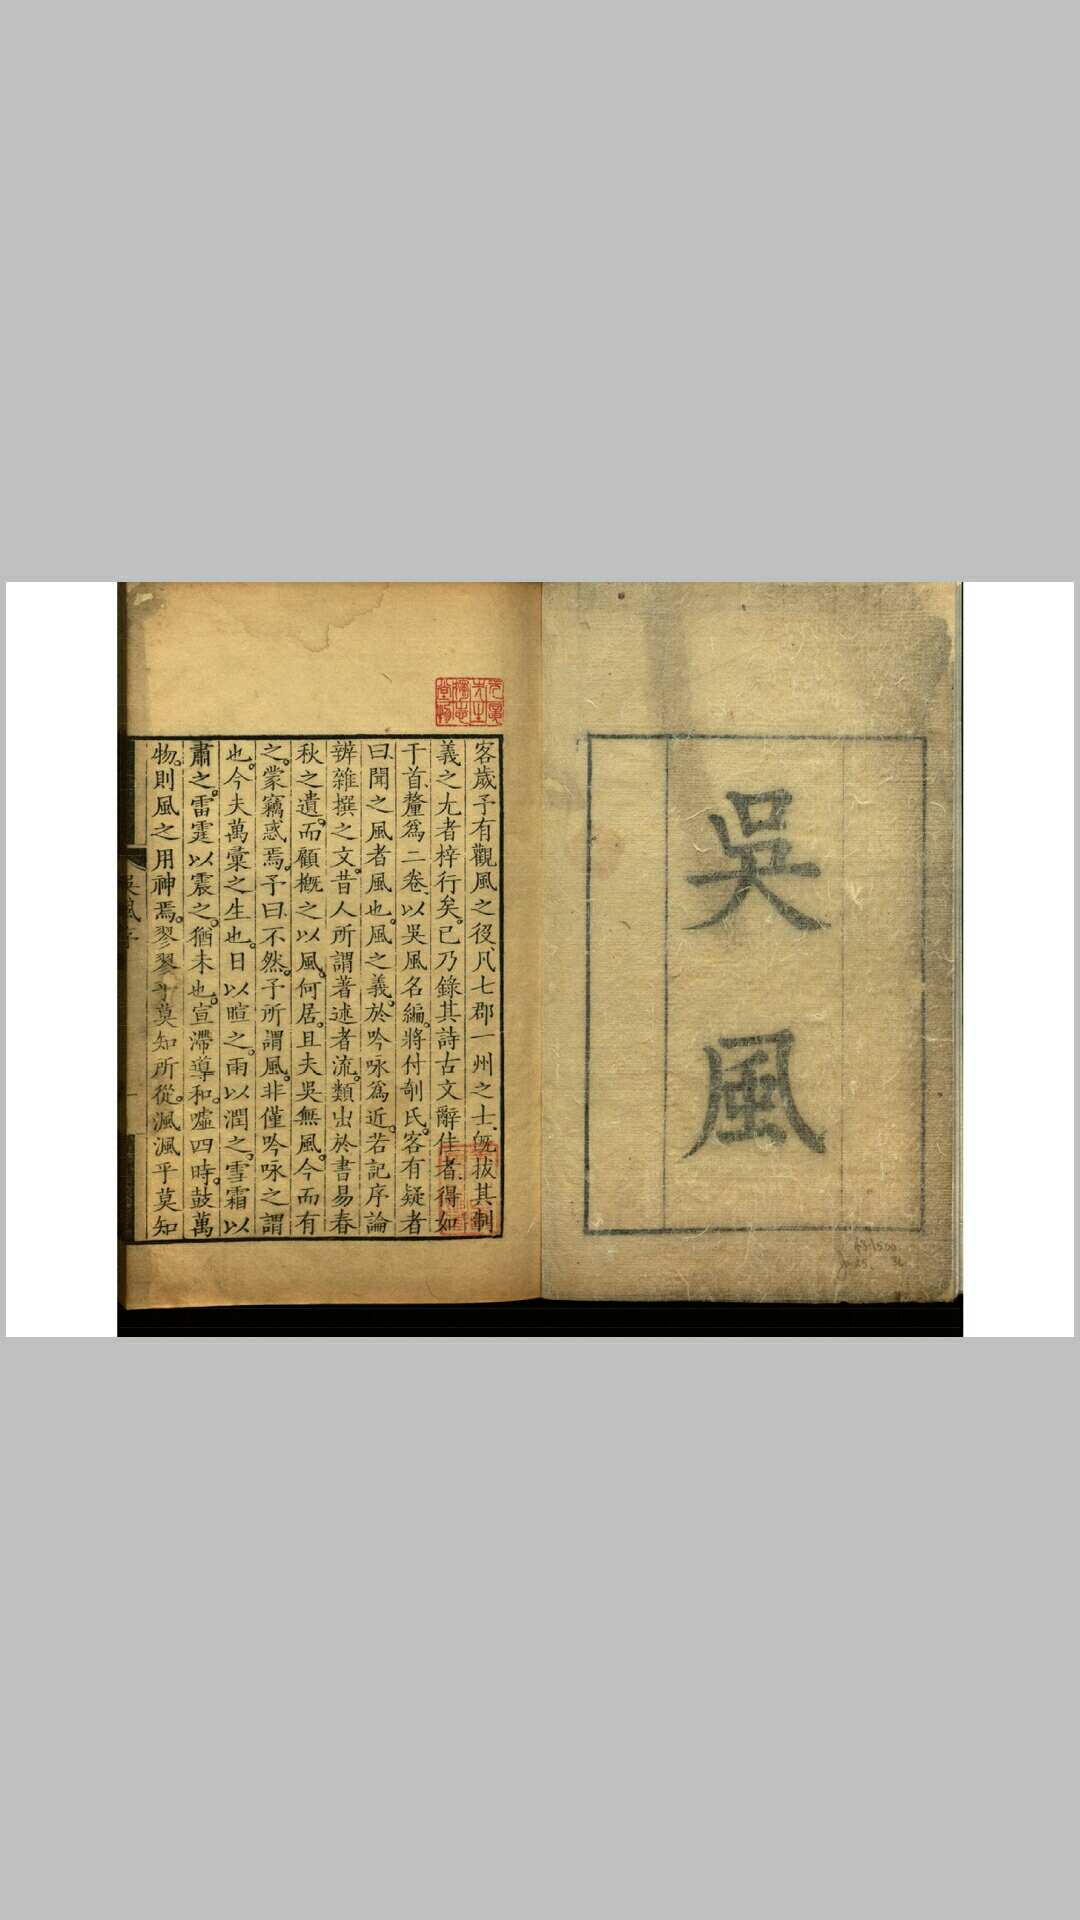 吳風
客歲予有觀風之役凡七郡一州之士旣拔其制
義之尤者梓行矣已乃錄其詩古文辭佳者得如
干首釐爲二卷以吳風名編將付剞氏客有疑者
曰聞之風者風也風之義於吟咏爲近若記序論
辨雜撰之文昔人所謂著述者流類出於書易春
秋之遺而顧槪之以風何居且夫吳無風今而有
之蒙竊惑焉予曰不然予所謂風非僅吟咏之謂
也今夫萬彙之生也日以暄之雨以潤之雪霜以
肅之雷霆以震之猶未也宣滯導和噓四時鼓萬
物則風之用神焉翏翏乎莫知所從渢渢乎莫知
吳風序
一